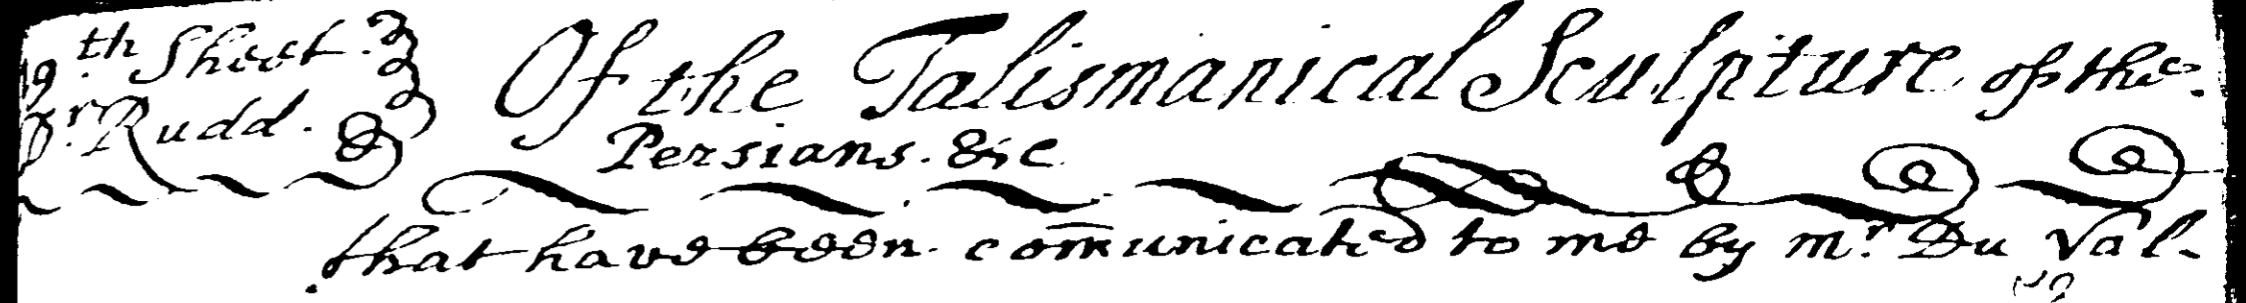 9th Sheet.
Dr. Rudd.
Of the Talismanical Sculpture of the
Persians. &c
that have been com̅unicated to me by mr. Du Val-